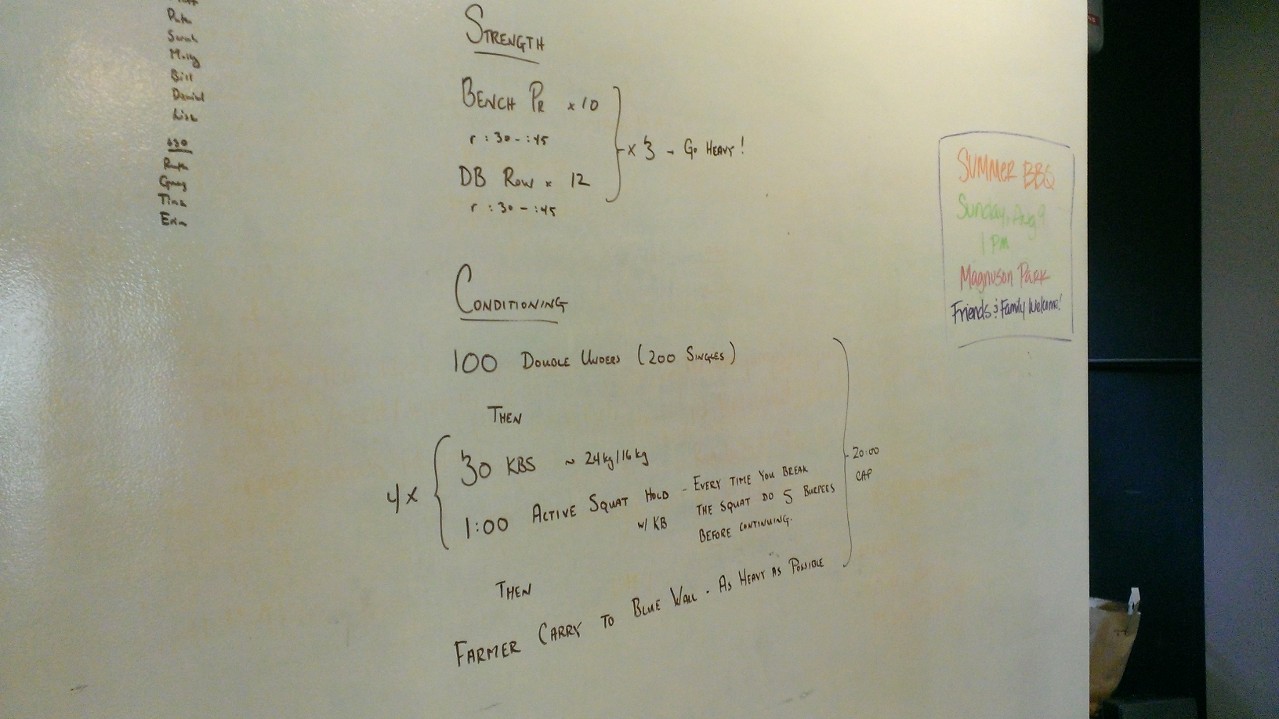 Bill
Daniel
Lisa
630
Tina
Erin
STRENGTH
BENCH PR x 10
r :30 - :45
DB ROW x 12
r :30 - :45
x 3 → GO HEAVY!
CONDITIONING
100 DOUBLE UNDERS (200 SINGLES)
THEN
4x
30 KBS ~ 24kg/16kg
1:00 ACTIVE SQUAT HOLD
w/ KB
- EVERY TIME YOU BREAK
THE SQUAT DO 5 BURPEES
BEFORE CONTINUING.
20:00
CAP
THEN
FARMER CARRY TO BLUE WALL - AS HEAVY AS POSSIBLE
SUMMER BBQ
Sunday, Aug 9
1 PM
Magnuson Park
Friends & Family Welcome!